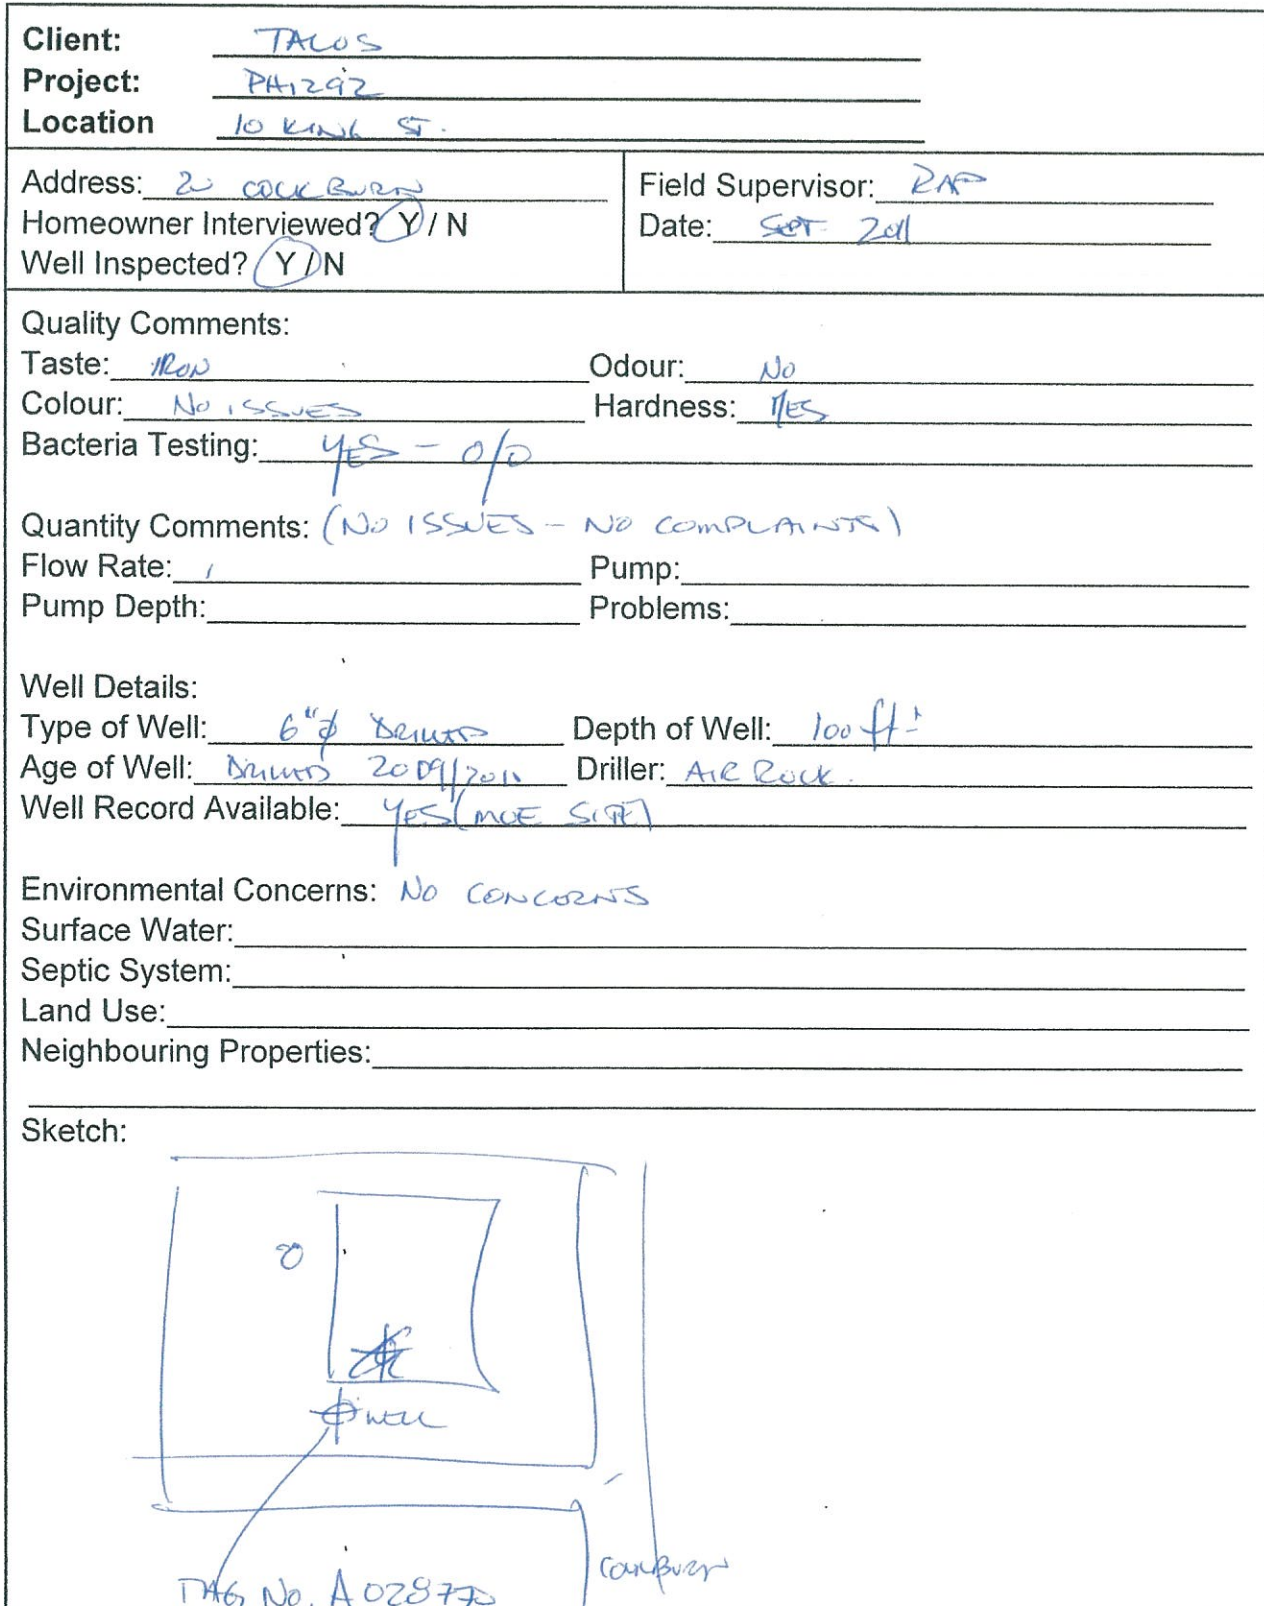 Client: TALOS
Project: PH1292
Location 10 KING ST.
Address: 20 COCKBURN
Field Supervisor: RAP
Homeowner Interviewed? Y / N
Date: SEPT 2011
Well Inspected? Y / N
Quality Comments:
Taste: IRON Odour: No
Colour: No ISSUES Hardness: YES
Bacteria Testing: YES - 0/0
Quantity Comments: (NO ISSUES - NO COMPLAINTS)
Flow Rate: Pump:
Pump Depth: Problems:
Well Details:
Type of Well: 6"ø DRILLED Depth of Well: 100 ft ±
Age of Well: DRILLED 2009/2010 Driller: AIR ROCK.
Well Record Available: YES (MOE SITE)
Environmental Concerns: No CONCERNS
Surface Water:
Septic System:
Land Use:
Neighbouring Properties:
Sketch:
WELL
COCKBURN
TAG No. A 028770